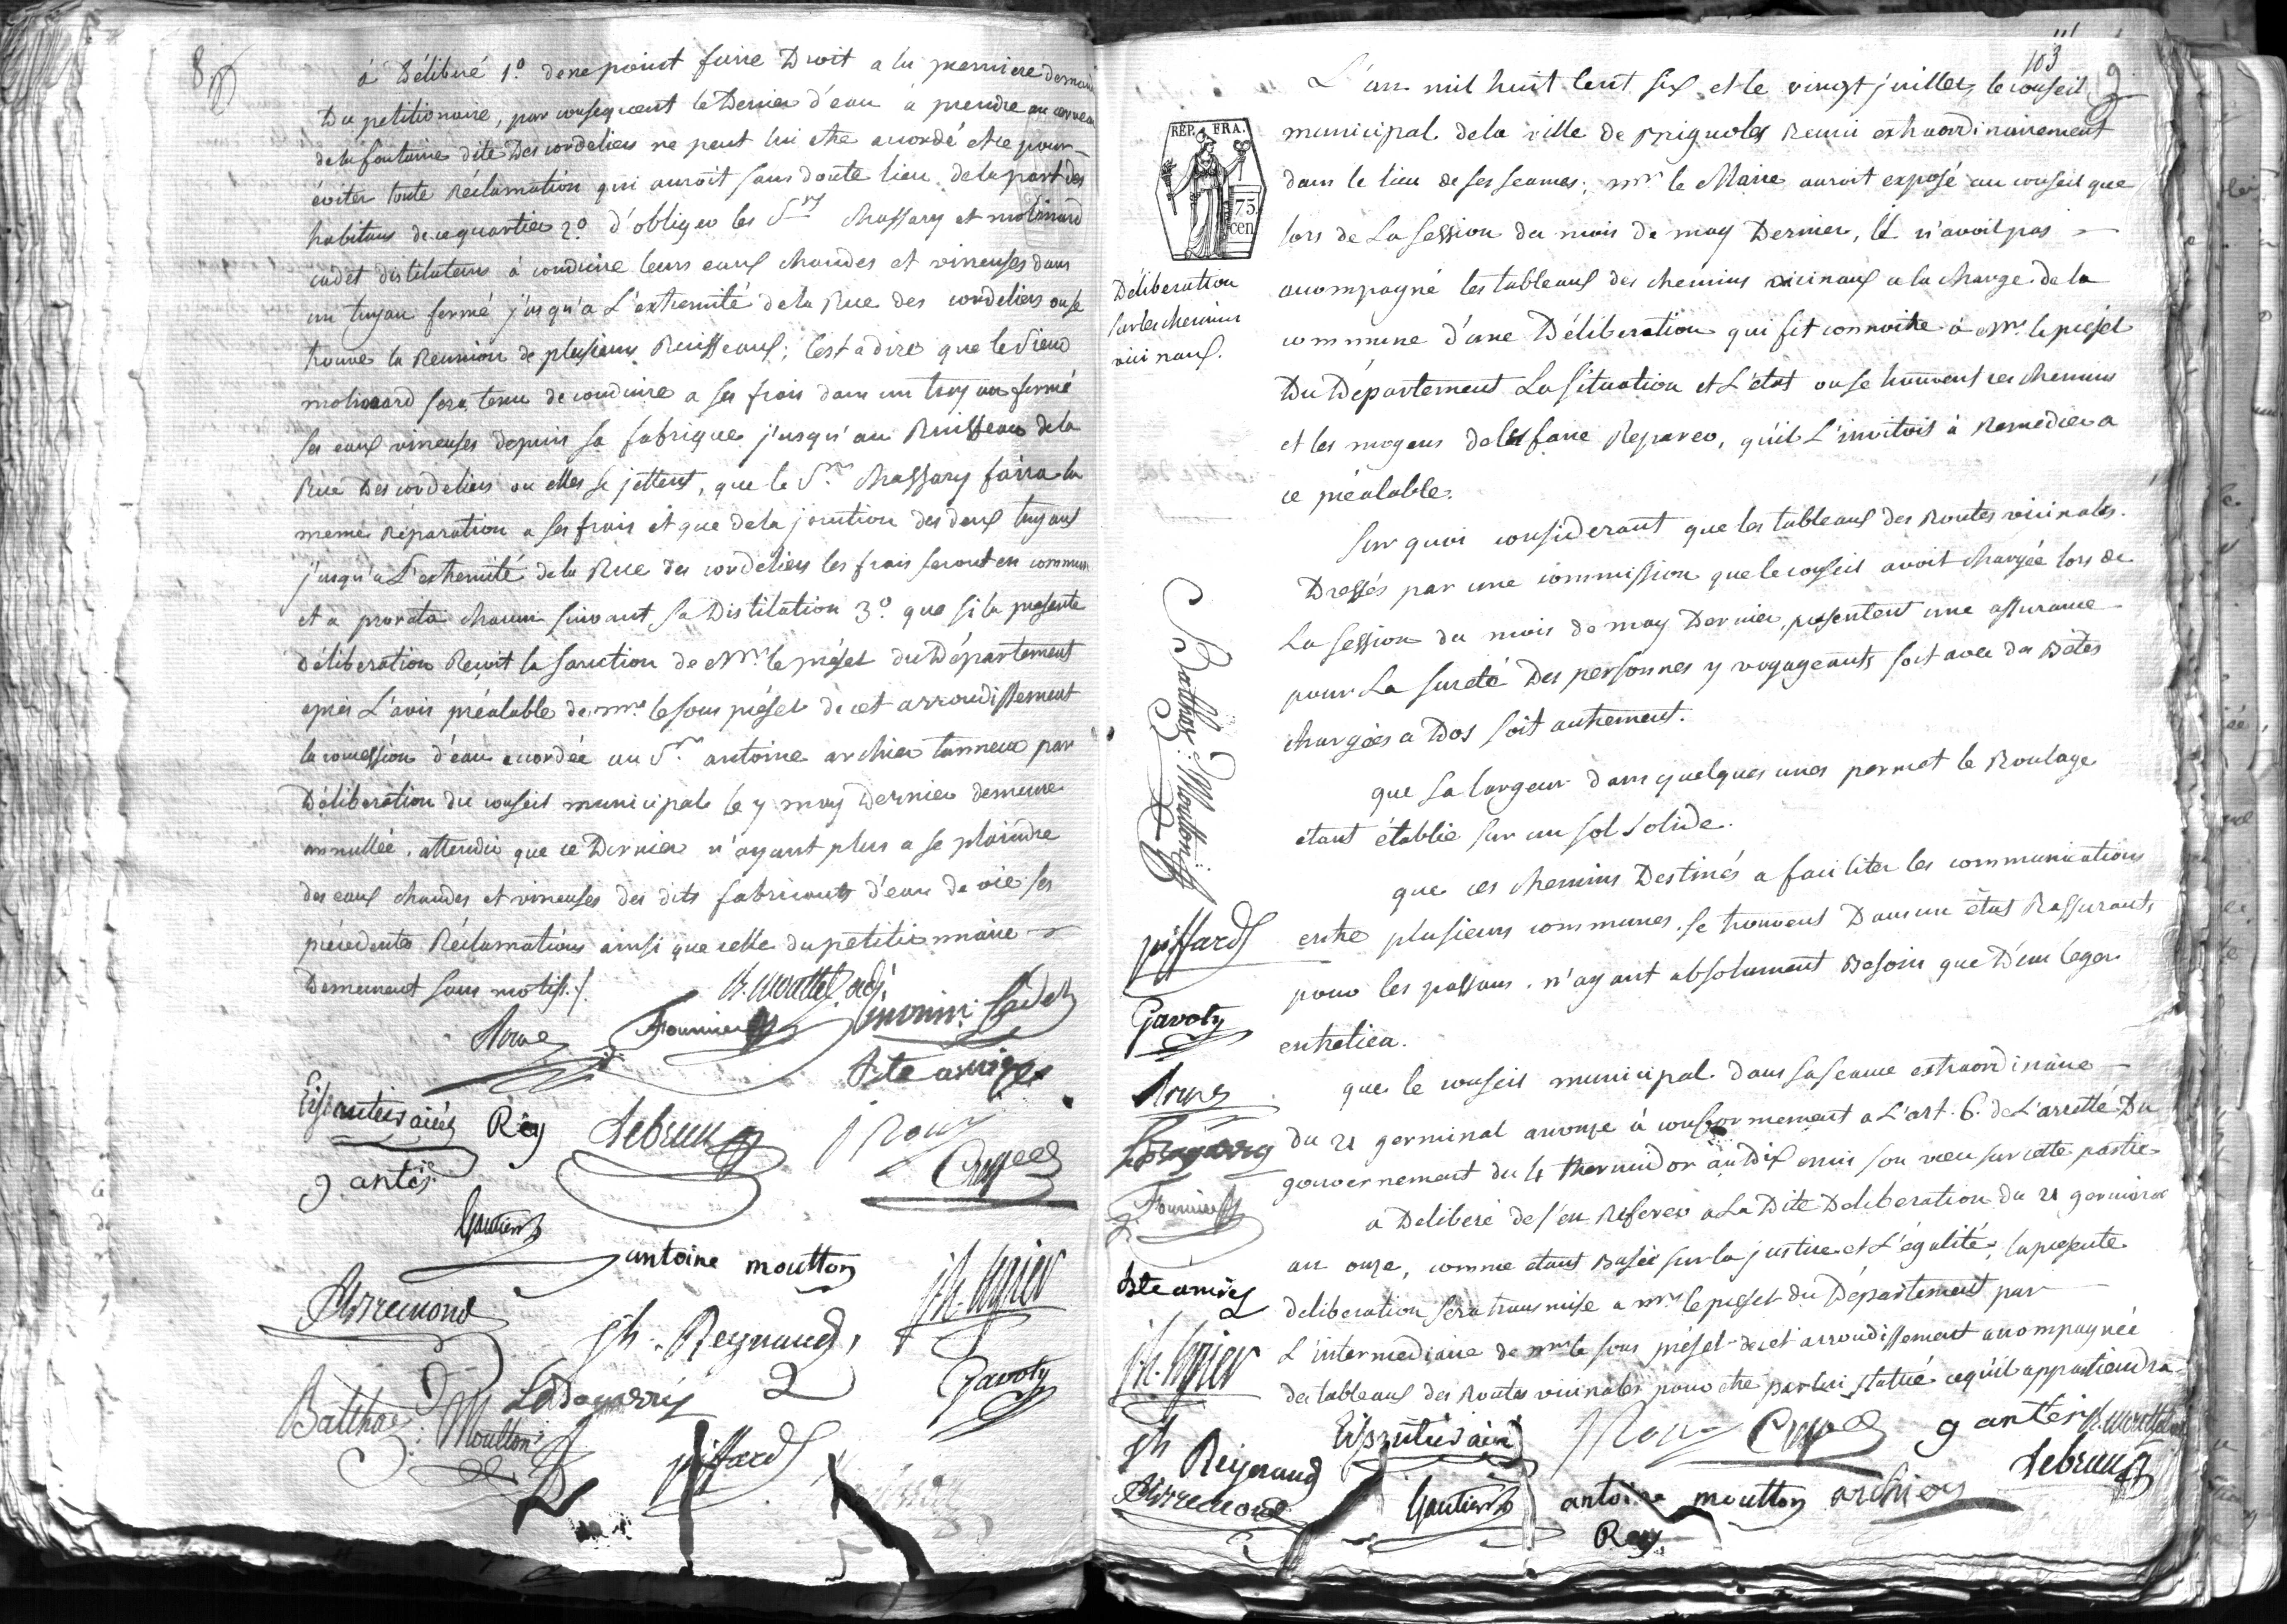 8
a Déliberé 1.º de ne point faire Droit a la premiere demande
Du petitionaire, par consequent le Denier d'eau a prendre au cerveau
de la fontaine dite Des cordeliers ne peut lui etre accordé et ce pour
éviter toute Réclamation qui auroit sans doute lieu de la part des
habitans de ce quartier 2.º d'obliger les S.rs Chassary et molinard
cadet distilateurs à conduire leurs eaux chaudes et vineuses dans
un tuyau fermé j'usqu'a L'extremité de la Rue des cordeliers ou se
trouve la Reunion de plusieurs Ruisseaux; C'est a dire que le Sieur
molinard sera tenu de conduire a ses frais dans un tuyau fermé
ses eaux vineuses depuis sa fabrique j'usqu'au Ruisseau de la
Rue Des cordeliers ou elles se jettent, que le S.r Chassary faira la
meme Réparation a ses frais et que de la jonction des deux tuyaux
j'usqu'a L'extremité de la Rue des cordeliers les frais seront en commun
et a prorata chacun suivant sa Distilation 3.º que si la presente
Déliberation Reçoit la sanction de Mr. le préfet du Département
aprés L'avis préalable de mr. le sous préfet de cet arrondissement
la concession d'eau accordée au S.r antoine archier tanneur par
Déliberation du conseil municipal le 7 may Dernier demeure
annullée, attendu que ce Dernier n'ayant plus a se plaindre
des eaux chaudes et vineuses des dits fabricants d'eau de vie ses
précédentes Réclamations ainsi que celle du petitionnaire
Demeurent sans motifs./.
Fournier
Bte amic
Rey Lebrun Roux
g antés
Gautier
antoine moutton
jh. Reynaud
Gavoty
Balthar. Moutton
piffard
103
9
L'an mil huit Cent six et le vingt juillet, le conseil
municipal de la ville de Brignoles Reuni extraordinairement
dans le lieu de ses seances; Mr. le Maire auroit exposé au conseil que
lors de La Session du mois de may Dernier, il n'avoit pas
accompagné les tableaux des chemins vicinaux a la charge de la
commune d'une Déliberation qui fit connoitre à Mr. le préfet
Du Département La Situation et L'état ou se trouvent ces chemins
et les moyens de les faire Reparer, qu'il L'invitoit à Remedier a
ce préalable.
REP. FRA.
75
cen
Déliberation
sur les chemins
vicinaux.
Sur quoi considerant que les tableaux des Routes vicinales
Dressés par une commission que le conseil avoit chargée lors de
La Session du mois de may Dernier, presentent une assurance
pour La sureté Des personnes y voyageants soit avec des Bétes
chargées a Dos soit autrement.
que sa largeur dans quelques unes permet le Roulage
étant établie sur un sol solide.
que ces chemins Destinés a faciliter les communications
entre plusieurs communes, se trouvent Dans un état Rassurant,
pour les passans, n'ayant absolument Besoin que D'un leger
entretien.
que le conseil municipal dans sa seance extraordinaire
du 21 germinal an onze à conformement a L'art. 6. de L'arretté Du
gouvernement du 4 thermidor an Dix emis son vœu sur cette partie
a Deliberé de s'en Referer a La Dite Deliberation du 21 germinal
an onze, comme etant Basée sur la justice et L'égalité; la presente
deliberation sera transmise a mr. le prefet du Département par
L'intermediaire de mr. le sous préfet de cet arrondissement accompagnée
des tableaux des Routes vicinales pour etre par lui statué ce qu'il appartiendra.
Balthar. Moutton
piffard
Gavoty
Fournier
Bte amic
jh Reynaud
Roux
g antés
Lebrun
Gautier antoine moutton archier
Rey